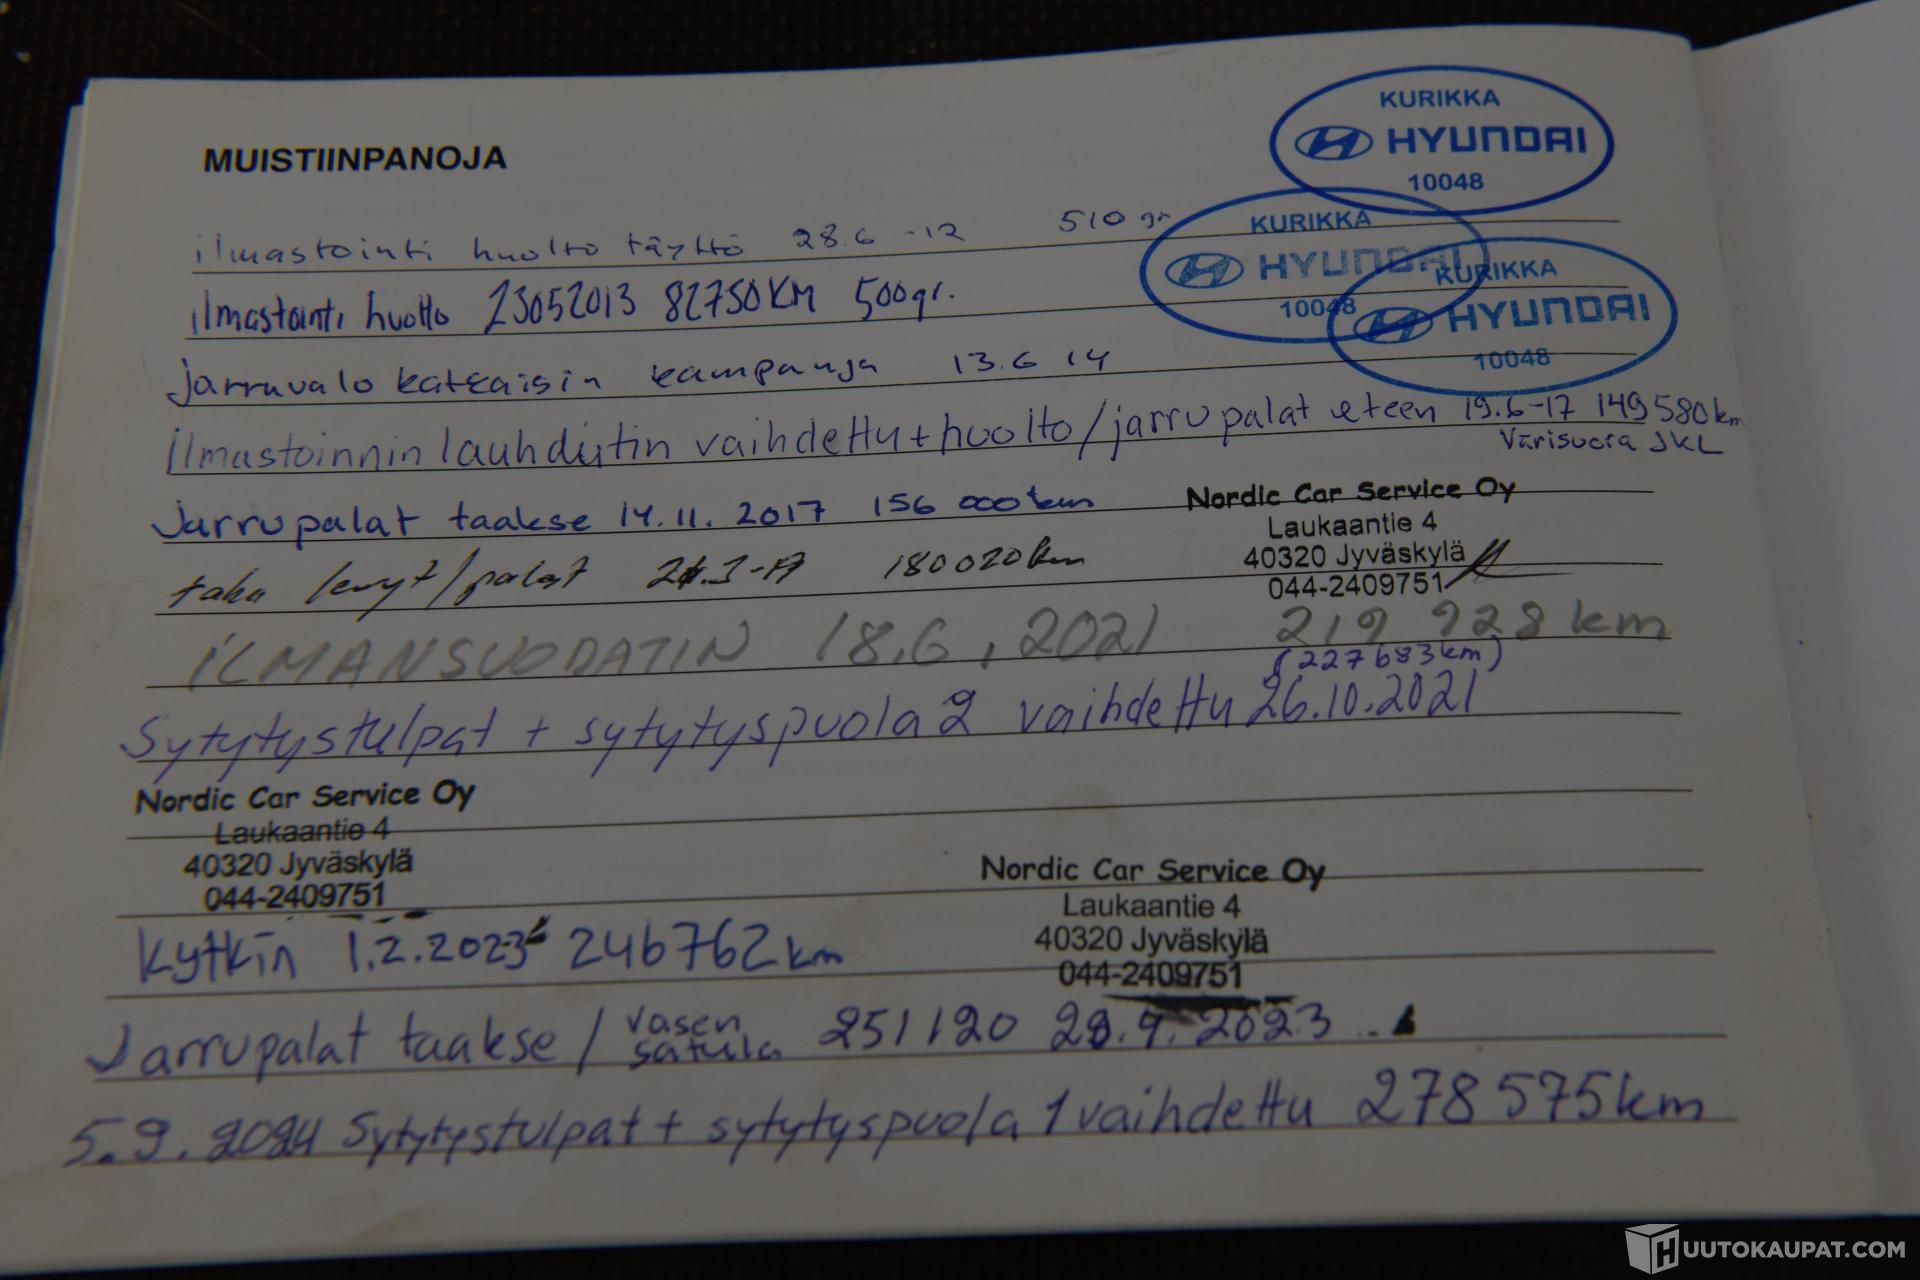 MUISTIINPANOJA
KURIKKA
HYUNDAI
10048
ilmastointi huolto täyttö 28.6 -12 510 gr
KURIKKA
HYUNDAI
10048
ilmastointi huolto 23052013 82750KM 500gr.
KURIKKA
HYUNDAI
10048
Jarruvalo katkaisin kampanja 13.6 14
ilmastoinnin lauhdutin vaihdettu + huolto / jarrupalat eteen 19.6-17 149 580 km
Värisuora JKL
Jarrupalat taakse 14.11. 2017 156 000 km
Nordic Car Service Oy
Laukaantie 4
40320 Jyväskylä
044-2409751
taka levyt / palat 180020 km
ILMANSUODATIN 18.6.2021 219 928 km
(227 683 km)
Sytytystulpat + sytytyspuola 2 vaihdettu 26.10.2021
Nordic Car Service Oy
Laukaantie 4
40320 Jyväskylä
044-2409751
Nordic Car Service Oy
Laukaantie 4
40320 Jyväskylä
044-2409751
Kytkin 1.2.2023 246762 km
Jarrupalat taakse / vasen satula 251120 28.4.2023
5.9.2024 Sytytystulpat + sytytyspuola 1 vaihdettu 278 575 km
HUUTOKAUPAT.COM